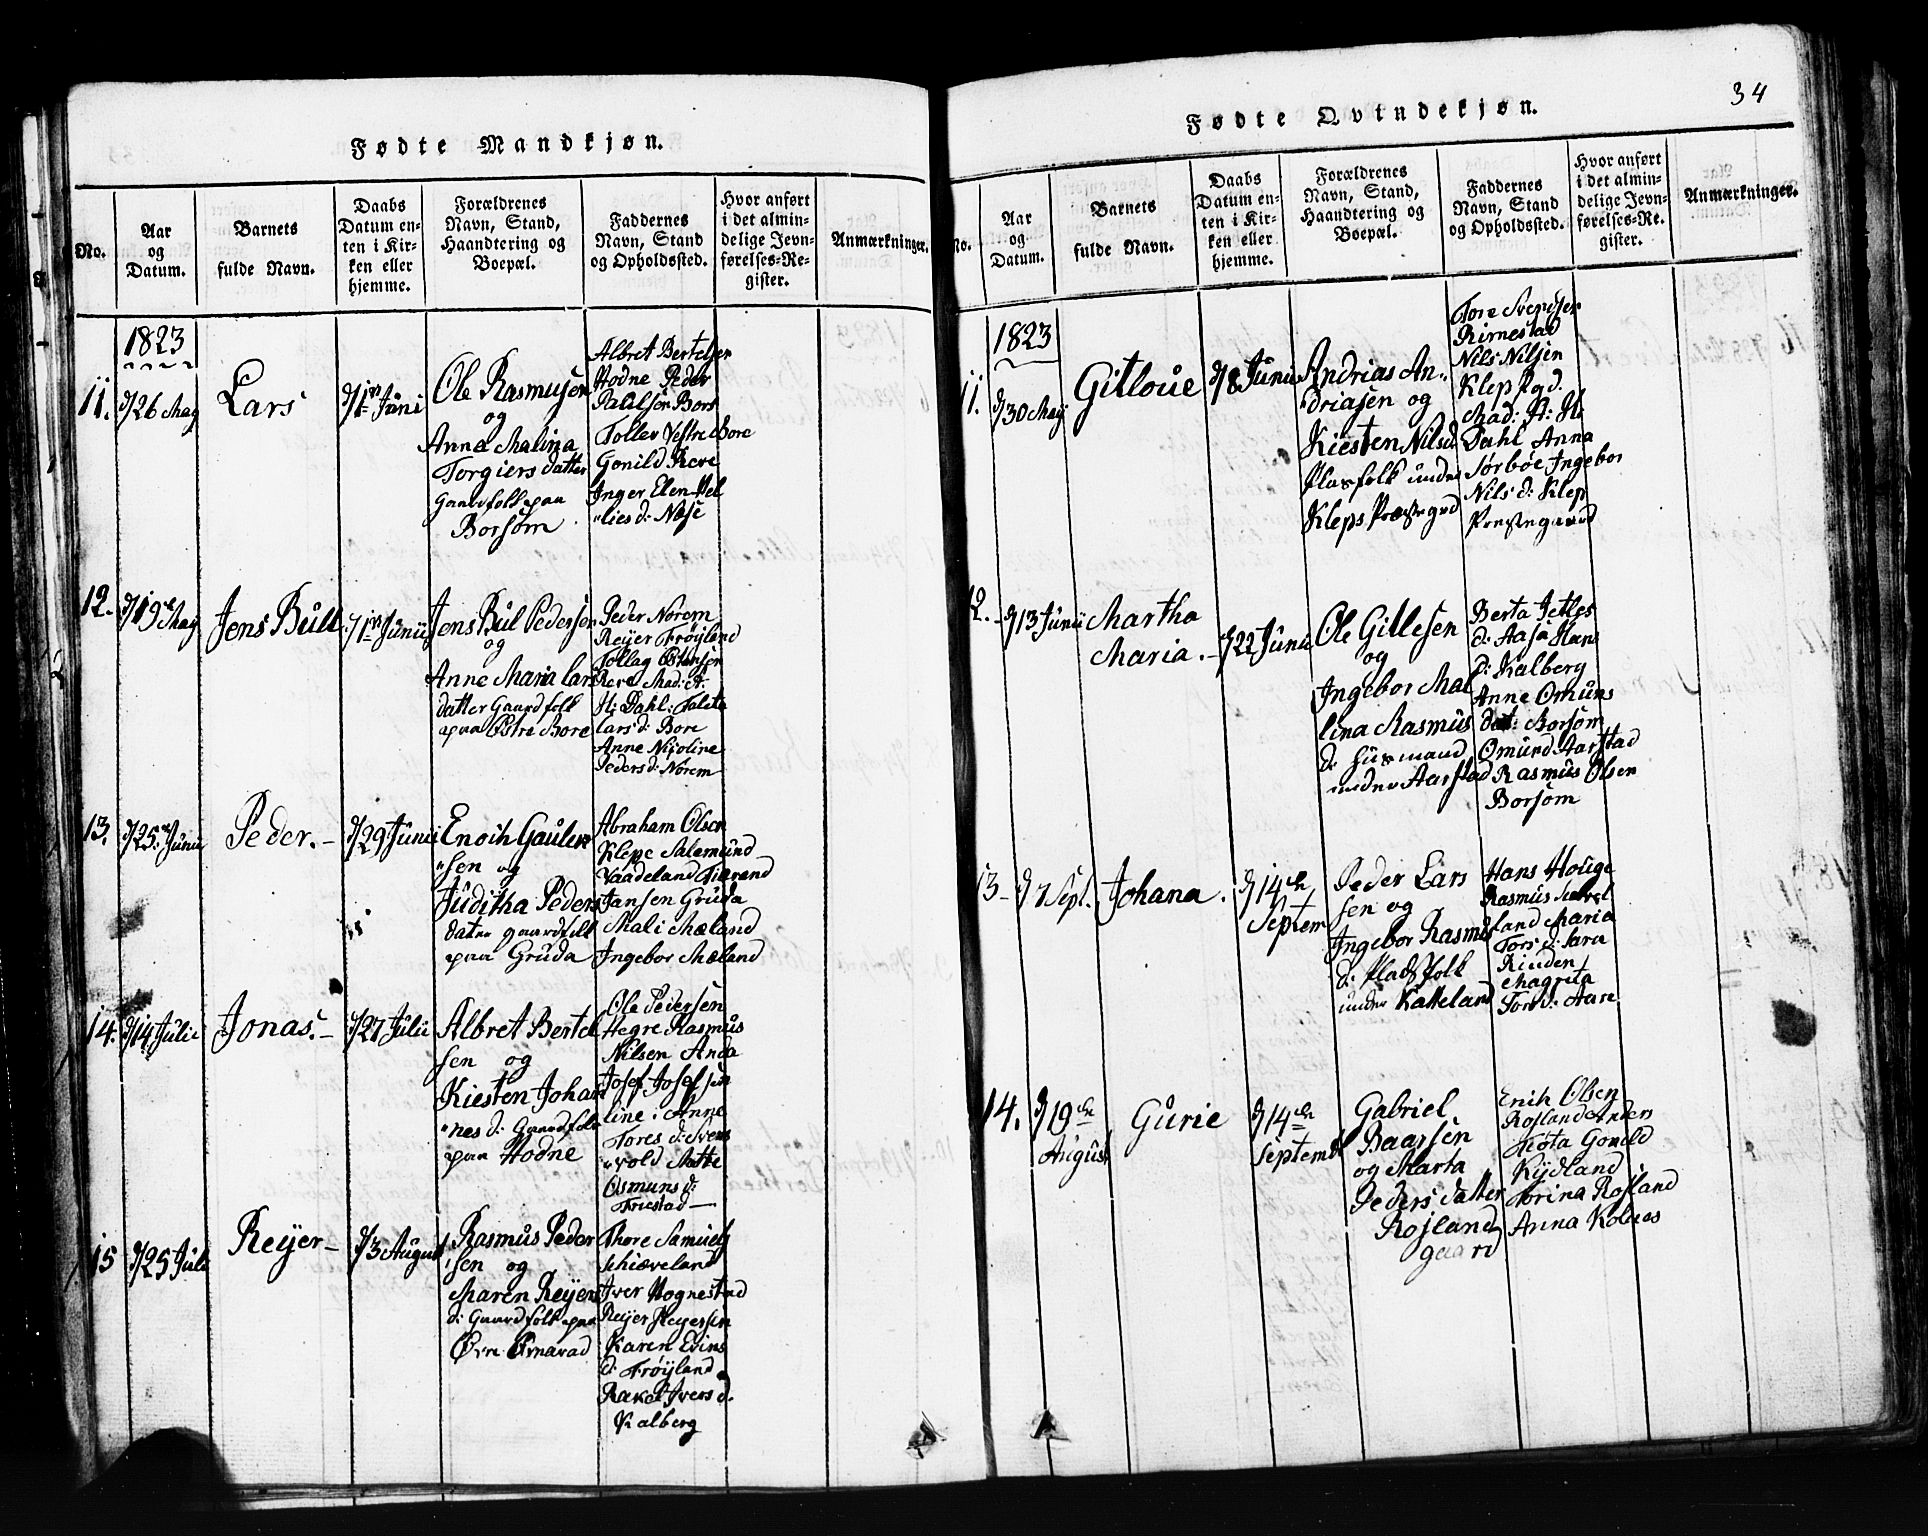 Fødte Mandkjøn.
No.
Aar
og
Datum.
Barnets
fulde Navn.
Daabs
Datum en-
ten i Kir-
ken eller
hjemme.
Forældrenes
Navn, Stand,
Haandtering og
Boepæl.
Faddernes
Navn, Stand
og Opholdssted.
Hvor anført
i det almin-
delige Jevn-
førelses-Re-
gister.
Anmærkninger.
1823
11.
d/26 May
Lars
d/1ste Juni
Ole Rasmusen
og
Anne Malina
Torgiers datter
Gaardfolk paa
Borsøm
Albret Bertelsen
Hodne Peder
Palilsøn Bors
Tollev Vestre Bore
Gonild Reve
Inger Elen Hel
"lies d: Næse
12.
d/19de May
Jens Bull
d/1ste Junii
Jens Bul Pedersen
og
Anne Maria Lars
datter Gaardfolk
paa Østre Bore
Peder Norem
Reijer Frøyland
Tollag Østensen
Reve Mad: A.
H: Dahl: Talite
Lars d: Bore
Anne Nijoline
Peders d: Norem
13.
d/25de Junii
Peder.–
d/29 Junii
Enoch Gaulen
"sen og
Juditha Peders
dater gaardfolk
paa Gruda
Abraham Olsen
Klepe Salemund
Vaadeland Tiærand
Jansen Gruda
Mali Mæland
Ingebor Mæland
14.
d/14 Julii
Jonas.–
d/27 Julii
Albret Bertel
sen og
Kiesten Johan
"nes d: Gaardfolk
paa Hodne
Ole Pedersen
Hegre Rasmus
Nilsen Anda
Josef Josefsen
line: Anne
Tores d: Svens
"vold Matte
Osmuns d:
Friestad –
15
d/25 Juli
Reijer –
d/3 August
Rasmus Peder
sen og
Maren Reijers
d: Gaardfolk paa
Øvre Øvnavad
Thore Samuels
Schiæveland
Iver Hognestad
Reijer Reyersen
Karen Evins
d: Frøijland
Rakel Ivers d.
Kalberg
34
Fødte Qvindekjøn.
No.
Aar
og
Datum.
Barnets
fulde Navn.
Daabs
Datum en-
ten i Kir-
ken eller
hjemme.
Forældrenes
Navn, Stand,
Haandtering og
Boepæl.
Faddernes
Navn, Stand
og Opholdssted.
Hvor anført
i det almin-
delige Jevn-
førelses-Re-
gister.
Anmærkninger.
1823
11.
d/30 May
Gitloue
d/8 Junii
Andrias An-
"driasen og
Kiesten Nilsd
Plasfolk under
Kleps Præstegrd
Tore Svendsen
Rimestad
Nils Nilsen
Klep Pgd.
Mad: A: H.
Dahl Anna
Sørbøe Ingebor
Nils d: Klep
Præstegaard
12.
d/13 Junii
Martha
Maria.–
d/22 Junii
Ole Gitlesen
og
Ingebor Mal
lina Rasmus
d: husmand
under Aarstad
Berta Jetles
d: Aasa Hans
d: Kalberg
Anne Omuns
dat: Borsøm
Omund Aarstad
Rasmus Olsen
Borsøm
13–
d/7 Sept.
Johana.
d/14de
Septem
Peder Lars
sen og
Ingebor Rasmus
d: Pladsfolk
under Katteland
Hans Houge
Rasmus
land Maria
Tors d: Sara
Rinden
Magreta
Tord: Aare
14.
d/19de
August
Gurie
d/14de
Septemb
Gabriel
Baarsen
og Marta
Peders datter
Rosland
gaard
Erik Olsen
Rosland Anders
Gonild
Kydland
Torina Rosland
Anna Kolnes